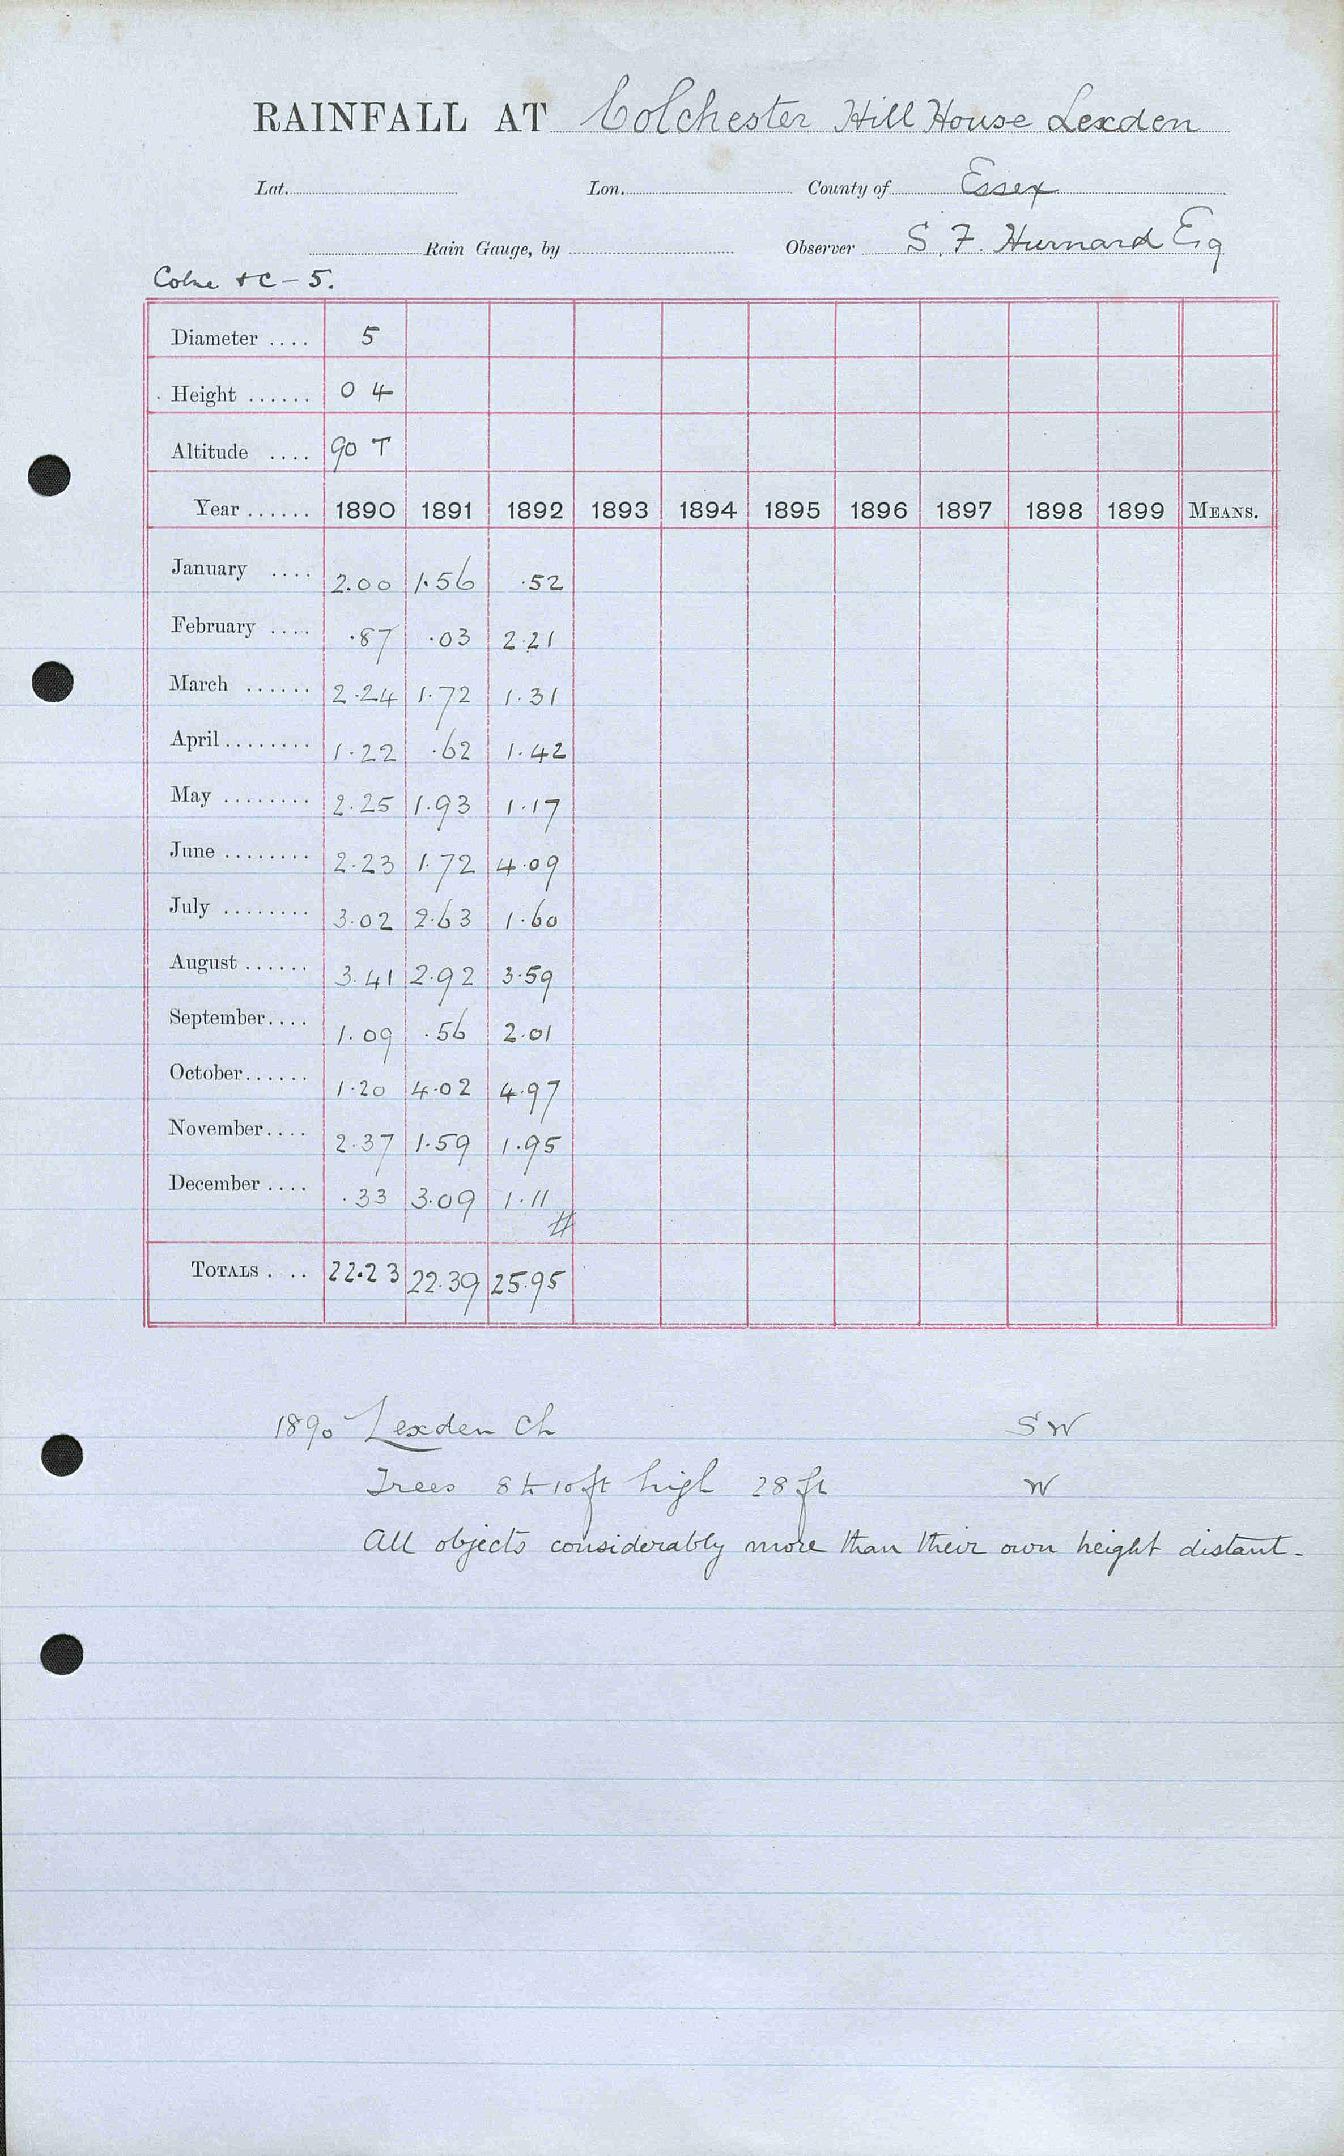 RAINFALL AT Colchester Hill House Lexden
Lat. Lon. County of Essex
Rain Gauge, by Observer S. F. Hurnard Esq
Colne & C – 5.
Diameter .... 5
Height ...... 0 4
Altitude .... 90 T
Year ...... 1890 1891 1892 1893 1894 1895 1896 1897 1898 1899 MEANS.
January .... 2.00 1.56 .52
February .... .87 .03 2.21
March ...... 2.24 1.72 1.31
April ........ 1.22 .62 1.42
May ........ 2.25 1.93 1.17
June ........ 2.23 1.72 4.09
July ........ 3.02 2.63 1.60
August ...... 3.41 2.92 3.59
September .... 1.09 .56 2.01
October ...... 1.20 4.02 4.97
November .... 2.37 1.59 1.95
December .... .33 3.09 1.11
#
TOTALS . .. 22.23 22.39 25.95
1890 Lexden Ch SW
Trees 8 to 10 ft high 28 ft W
All objects considerably more than their own height distant.